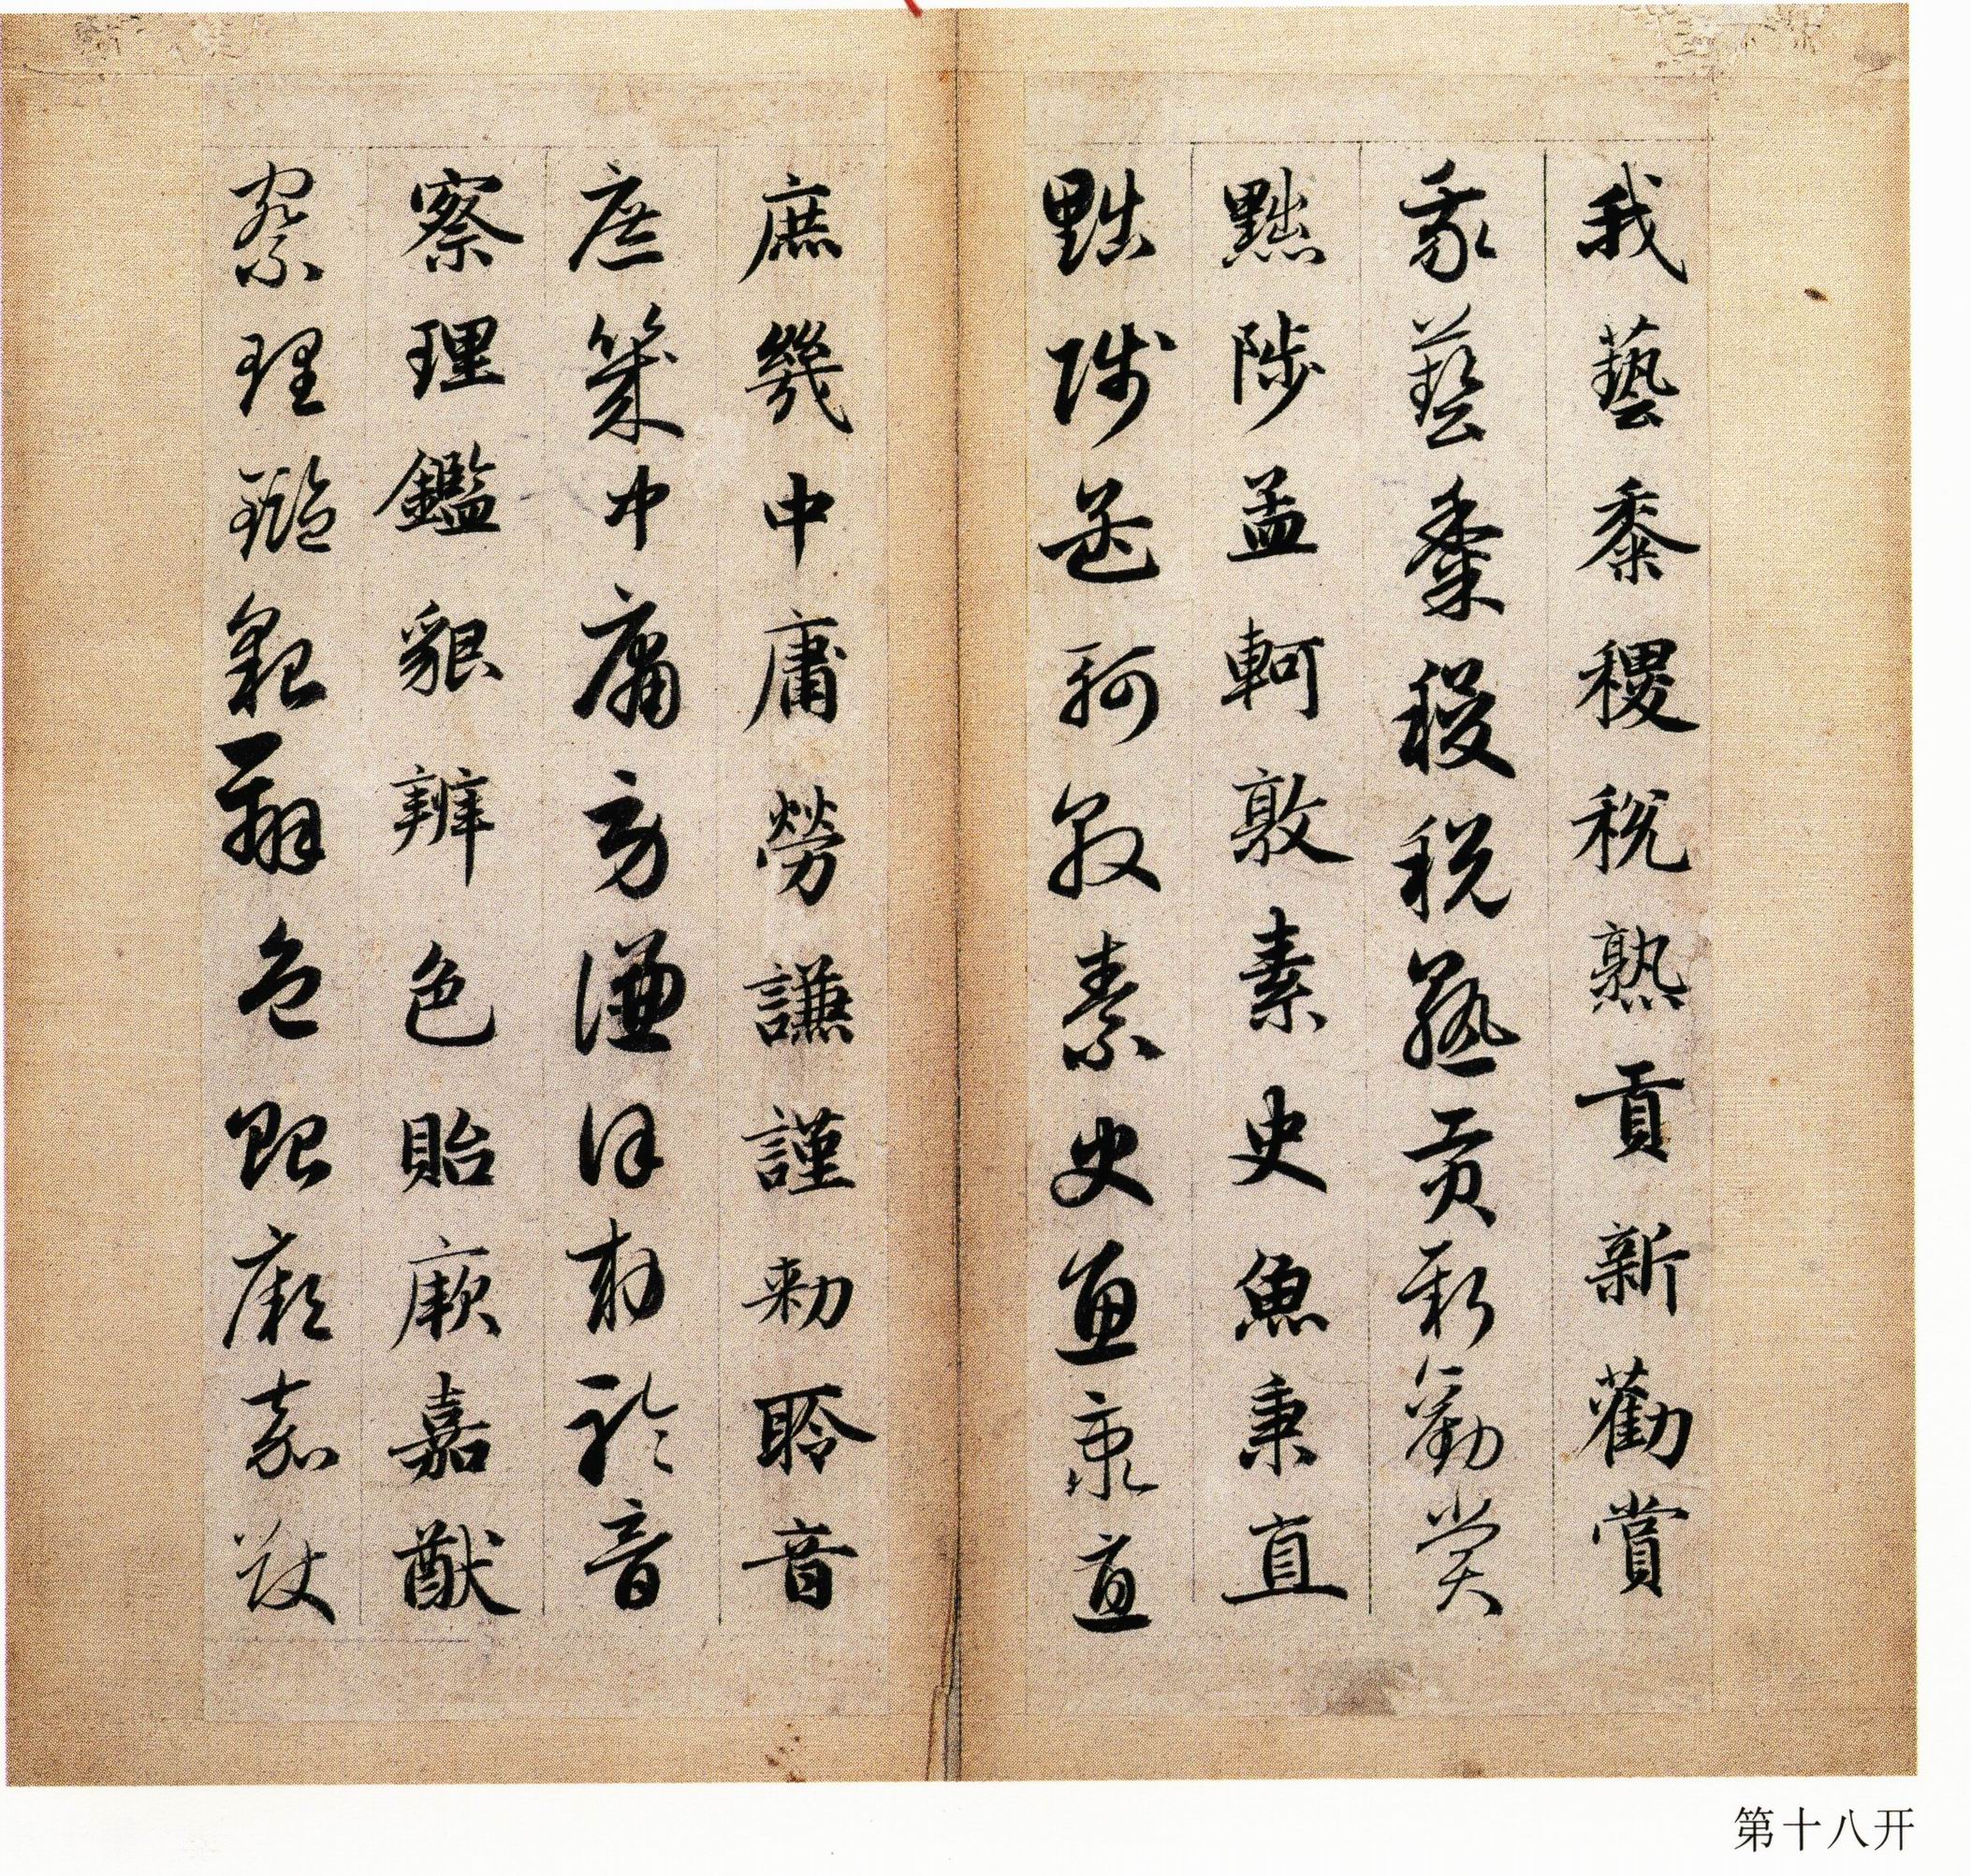 我藝黍稷稅熟貢新勸賞
我藝黍稷稅熟貢新勸賞
黜陟孟軻敦素史魚秉直
黜陟孟軻敦素史魚秉直
庶幾中庸勞謙謹勑聆音
庶幾中庸勞謙謹勑聆音
察理鑑貌辨色貽厥嘉猷
察理鑑貌辨色貽厥嘉猷
第十八开